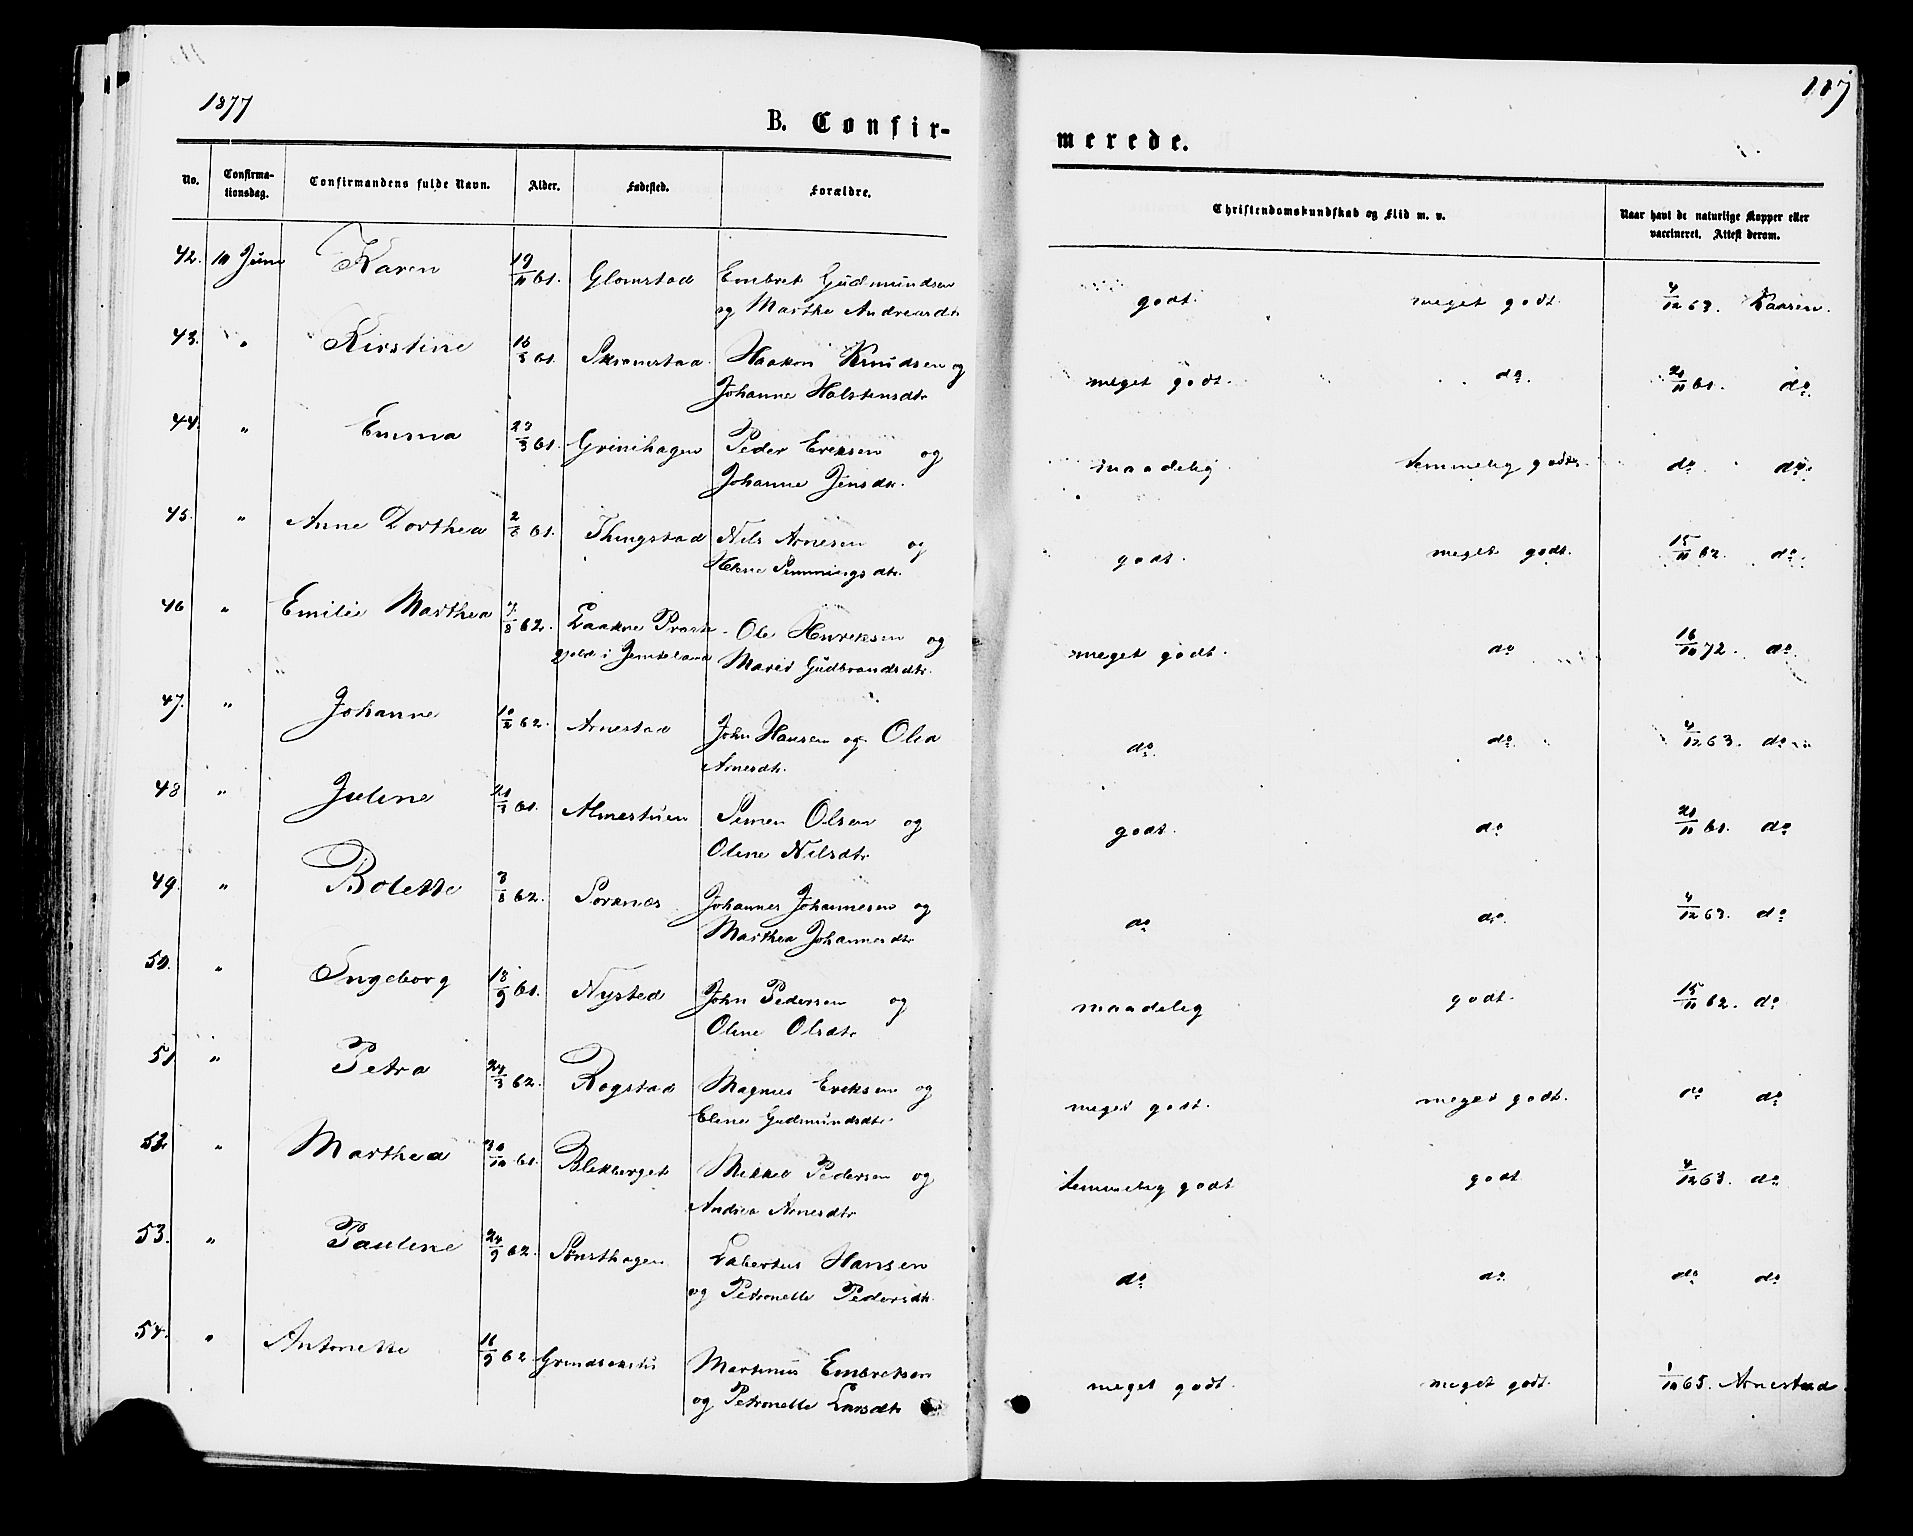 1877
117
B. Confir-
merede.
No.
Confirma-
tionsdag.
Confirmandens fulde Navn.
Alder.
Fødested.
Forældre.
Christendomskundskab og Flid m. v.
Naar havt de naturlige Kopper eller
vaccineret. Attest derom.
42. 10 Juni Karen 19/11 61. Glomstad Embret Gudmundsen
og Marthe Andreasdtr
godt. meget godt. 4/12 63. Kaasen.
43. " Kirstine 16/3 61. Skramstad Haakon Knudsen og
Johanne Halstensdtr
meget godt. do. 21/11 61. do.
44. " Emma 23/3 61. Grinihagen Peder Eriksen og
Johanne Jensdtr.
maadelig temmelig godt. do. do.
45. " Anne Dorthea 2/8 61. Thingstad Nils Arnesen og
Helene Semmingsdtr.
godt. meget godt. 15/11 62. do.
46 " Emilie Marthea 7/8 62. Præste-
gjeld i Jemteland
Ole Henriksen og
Marit Gudbrandsdtr.
meget godt. do 16/10 72. do.
47. " Johanne 10/2 62. Arnestad John Hansen og Olea
Arnesdtr.
do. do. 4/12 63. do.
48 " Juline 21/3 61. Almestuen Simen Olsen og
Oline Nilsdtr
godt. do 21/11 61. do
49. " Bolette 3/8 62. Sorknæs Johannes Johannesen og
Marthea Johannesdtr
do do. 4/12 63. do
50. " Ingeborg 18/9 61. Nysted John Pedersen og
Oline Olsdtr
maadelig godt. 15/11 62. do
51 " Petra 24/3 62. Rogstad Magnus Eriksen og
Eline Gudmundsdtr.
meget godt. meget godt. do do
52 " Marthea 30/10 61. Blekberget Mikkel Pedersen og
Andrea Arnesdtr
temmelig godt godt 4/12 63. do
53. " Pauline 24/9 62. Sønsthagen Labertus Hansen
og Petronelle Pedersdtr.
do do. do do
54. " Antonette 16/9 62. Martinus Embretsen
og Petronelle Larsdtr
meget godt. meget godt. 1/10 65. Arnestad.